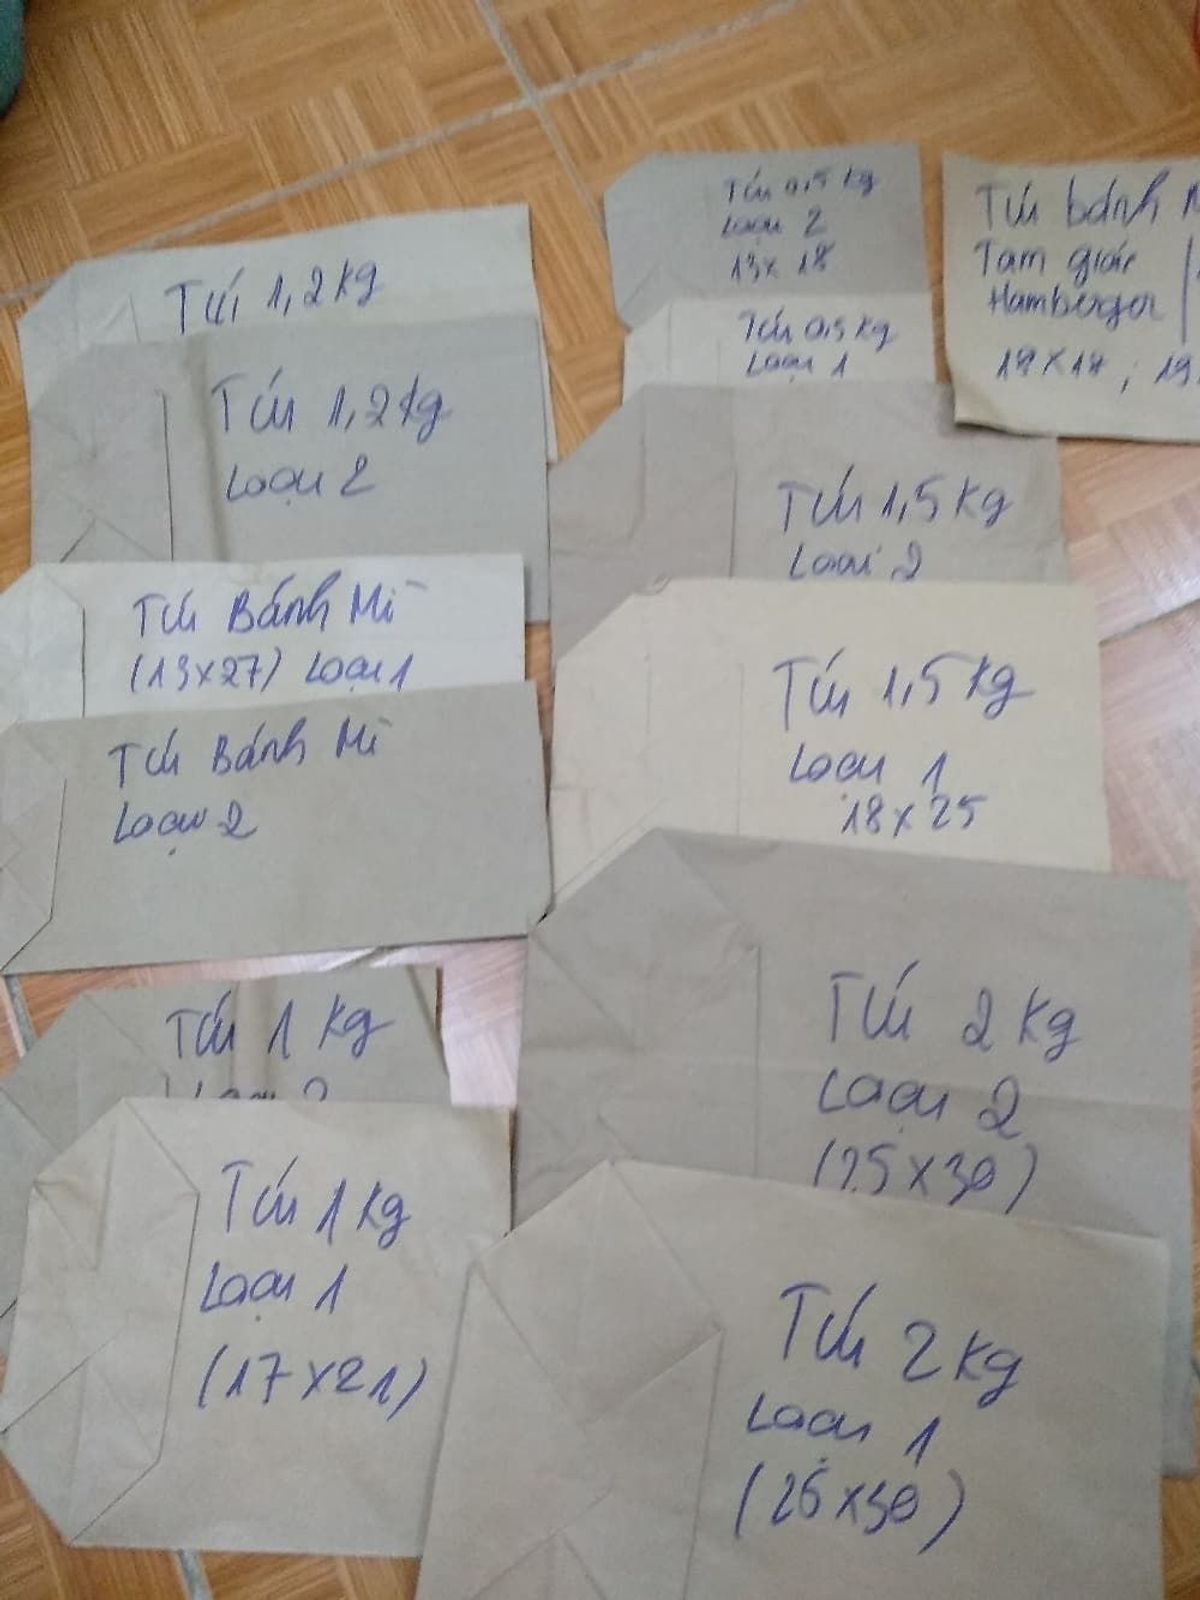 Túi 1,2kg
Túi 1,2kg
Loại 2
Túi Bánh Mì
(13x27) Loại 1
Túi Bánh Mì
Loại 2
Túi 1 kg
Loại 2
Túi 1 kg
Loại 1
(17x21)
Túi 0,5 kg
Loại 2
13x 18
Túi 0,5 kg
Loại 1
Túi bánh
Tam giác
Hamberger
18x18 ; 19
Túi 1,5 kg
Loại 2
Túi 1,5 kg
Loại 1
18x 25
Túi 2 kg
Loại 2
(25x30)
Túi 2 kg
Loại 1
(25x30)